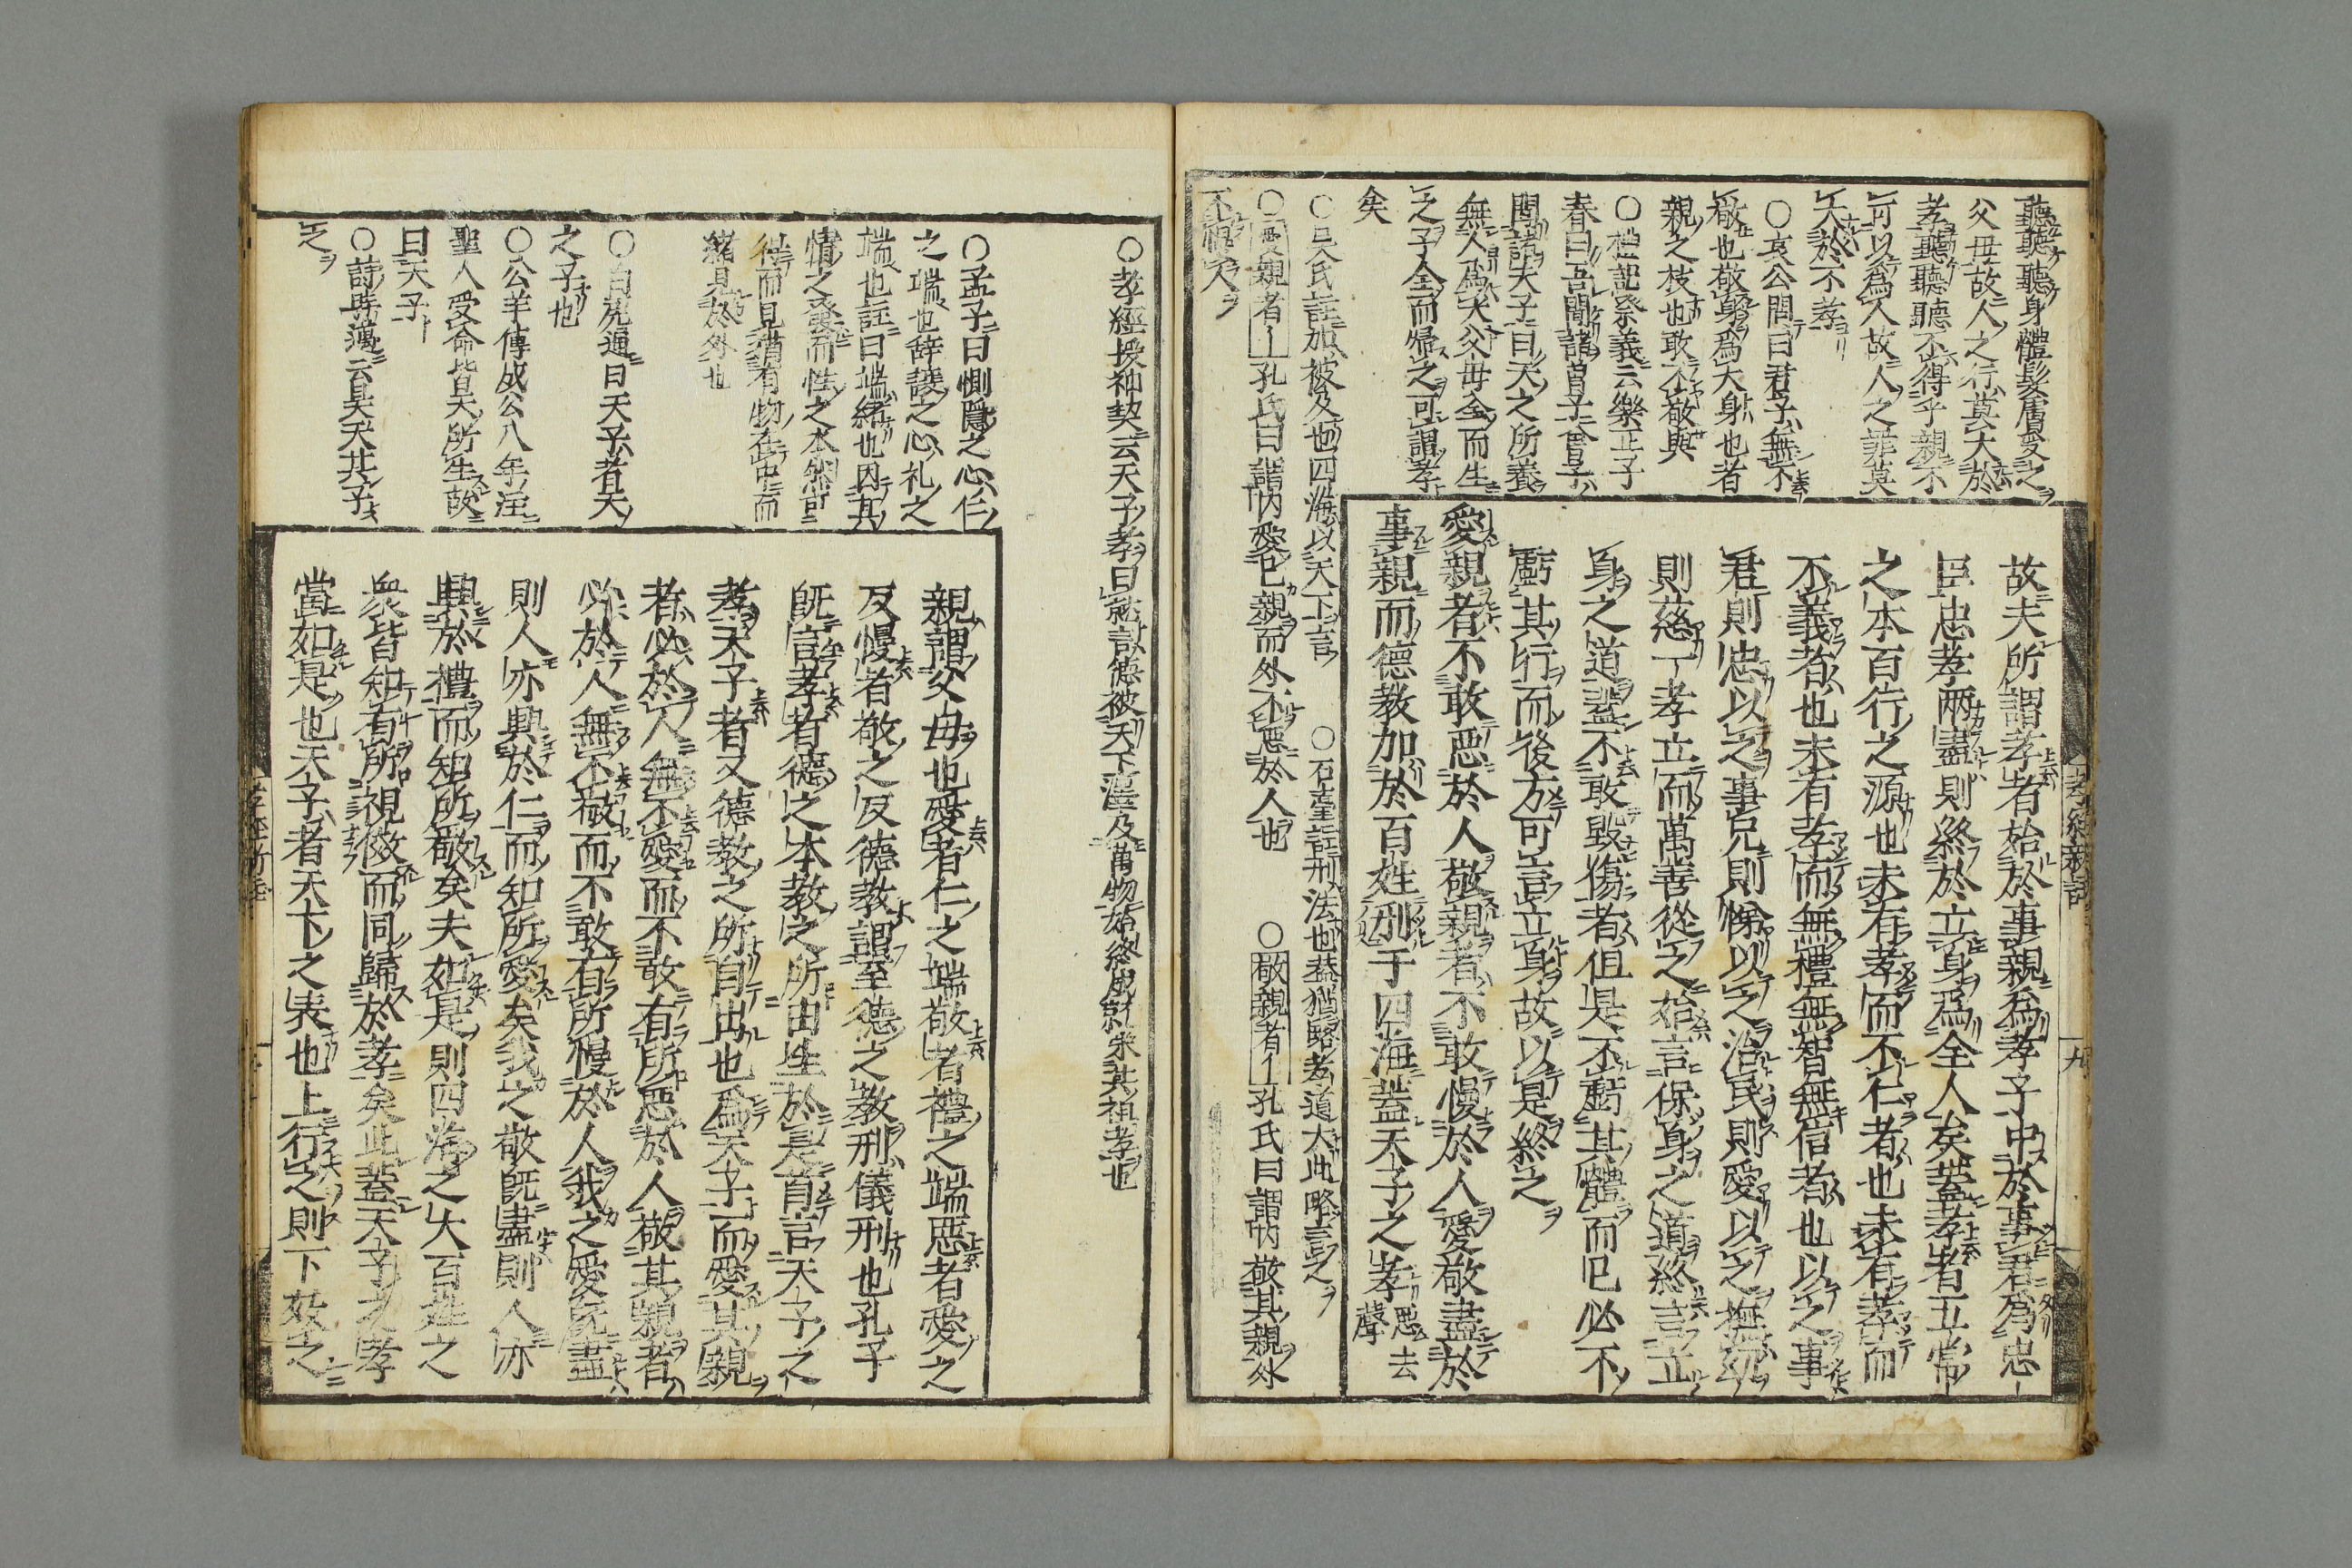 聽聽聽身體髮膚受之
父母故人之行莫大於
孝聽聽聽不得乎親不
可以爲人故人之罪莫
大於不孝
○哀公問曰君子無不
敬也敬身爲大身也者
親之枝也敢不敬與
○禮記祭義云樂正子
春曰吾聞諸曾子曾子
聞諸夫子曰天之所養
無人爲大父母全而生
之子全而帰之可謂孝
矣
○吳氏註加被及也四海以天下言
○石臺註刑法也蓋猶略孝道大此略言之
○愛親者孔氏曰謂內愛己親而外不惡於人也
○敬親者孔氏曰謂內敬其親外
不慢人
故夫所謂孝者始於事親爲孝子中於事君爲忠
臣忠孝兩盡則終於立身爲全人矣蓋孝者五常
之本百行之源也未有孝而不仁者也未有孝而
不義者也未有孝而無禮無智無信者也以之事
君則忠以之事兄則悌以之治民則愛以之撫幼
則慈一孝立而萬善從之始言保身之道終言立
身之道蓋不敢毀傷者但是不虧其體而已必不
虧其行而後方可言立身故以是終之
愛親者不敢惡於人敬親者不敢慢於人愛敬盡於
事親而德教加於百姓刑于四海蓋天子之孝惡去聲
孝經新註
九
○孝經援神契云天子孝曰就言德被天下澤及萬物始終成就榮其祖孝也
○孟子曰惻隱之心仁
之端也辞讓之心礼之
端也註曰端緒也因其
情之發而性之本然可
得而見猶有物在中而
緒見於外也
○白虎通曰天子者天
之子也
○公羊傳成公八年注
聖人受命皆天所生故
曰天子
○詩時邁云昊天其子
之
親謂父母也愛者仁之端敬者禮之端惡者愛之
反慢者敬之反德教謂至德之教刑儀刑也孔子
既言孝者德之本教之所由生於是首言天子之
孝天子者又德教之所自出也爲天子而愛其親
者必於人無不愛而不敢有所惡於人敬其親者
必於人無不敬而不敢有所慢於人我之愛既盡
則人亦興於仁而知所愛矣我之敬既盡則人亦
興於禮而知所敬矣夫如是則四海之大百姓之
衆皆知有所視傚而同歸於孝矣此蓋天子之孝
當如是也天子者天下之表也上行之則下效之